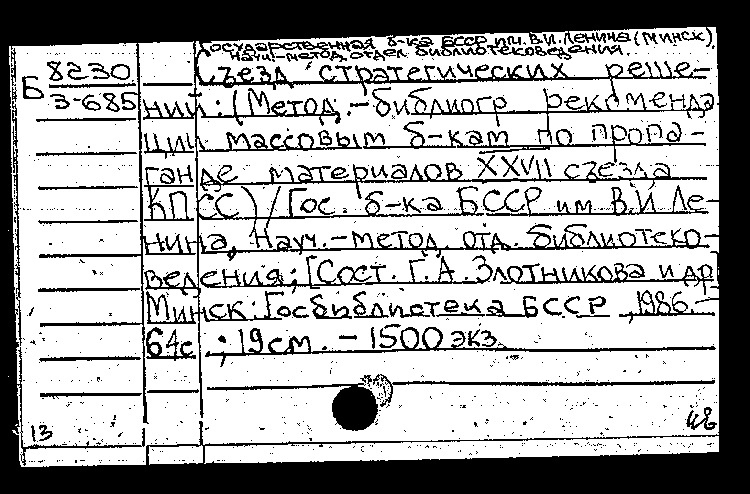 Государственная б-ка БССР им. В.И. Ленина (Минск).
Науч.-метод. отдел библиотековедения.
Б 8230
3-685
Съезд стратегических реше-
ний: (Метод.-библиогр рекоменда
ции массовым б-кам по пропа-
ганде материалов XXVII съезда
КПСС) / Гос. б-ка БССР им. В.И Ле-
нина, Науч.-метод. отд. библиотеко-
ведения; [Сост. Г.А. Злотникова и др
Минск: Госбиблиотека БССР, 1986.—
64с.; 19см. — 1500 экз.
13